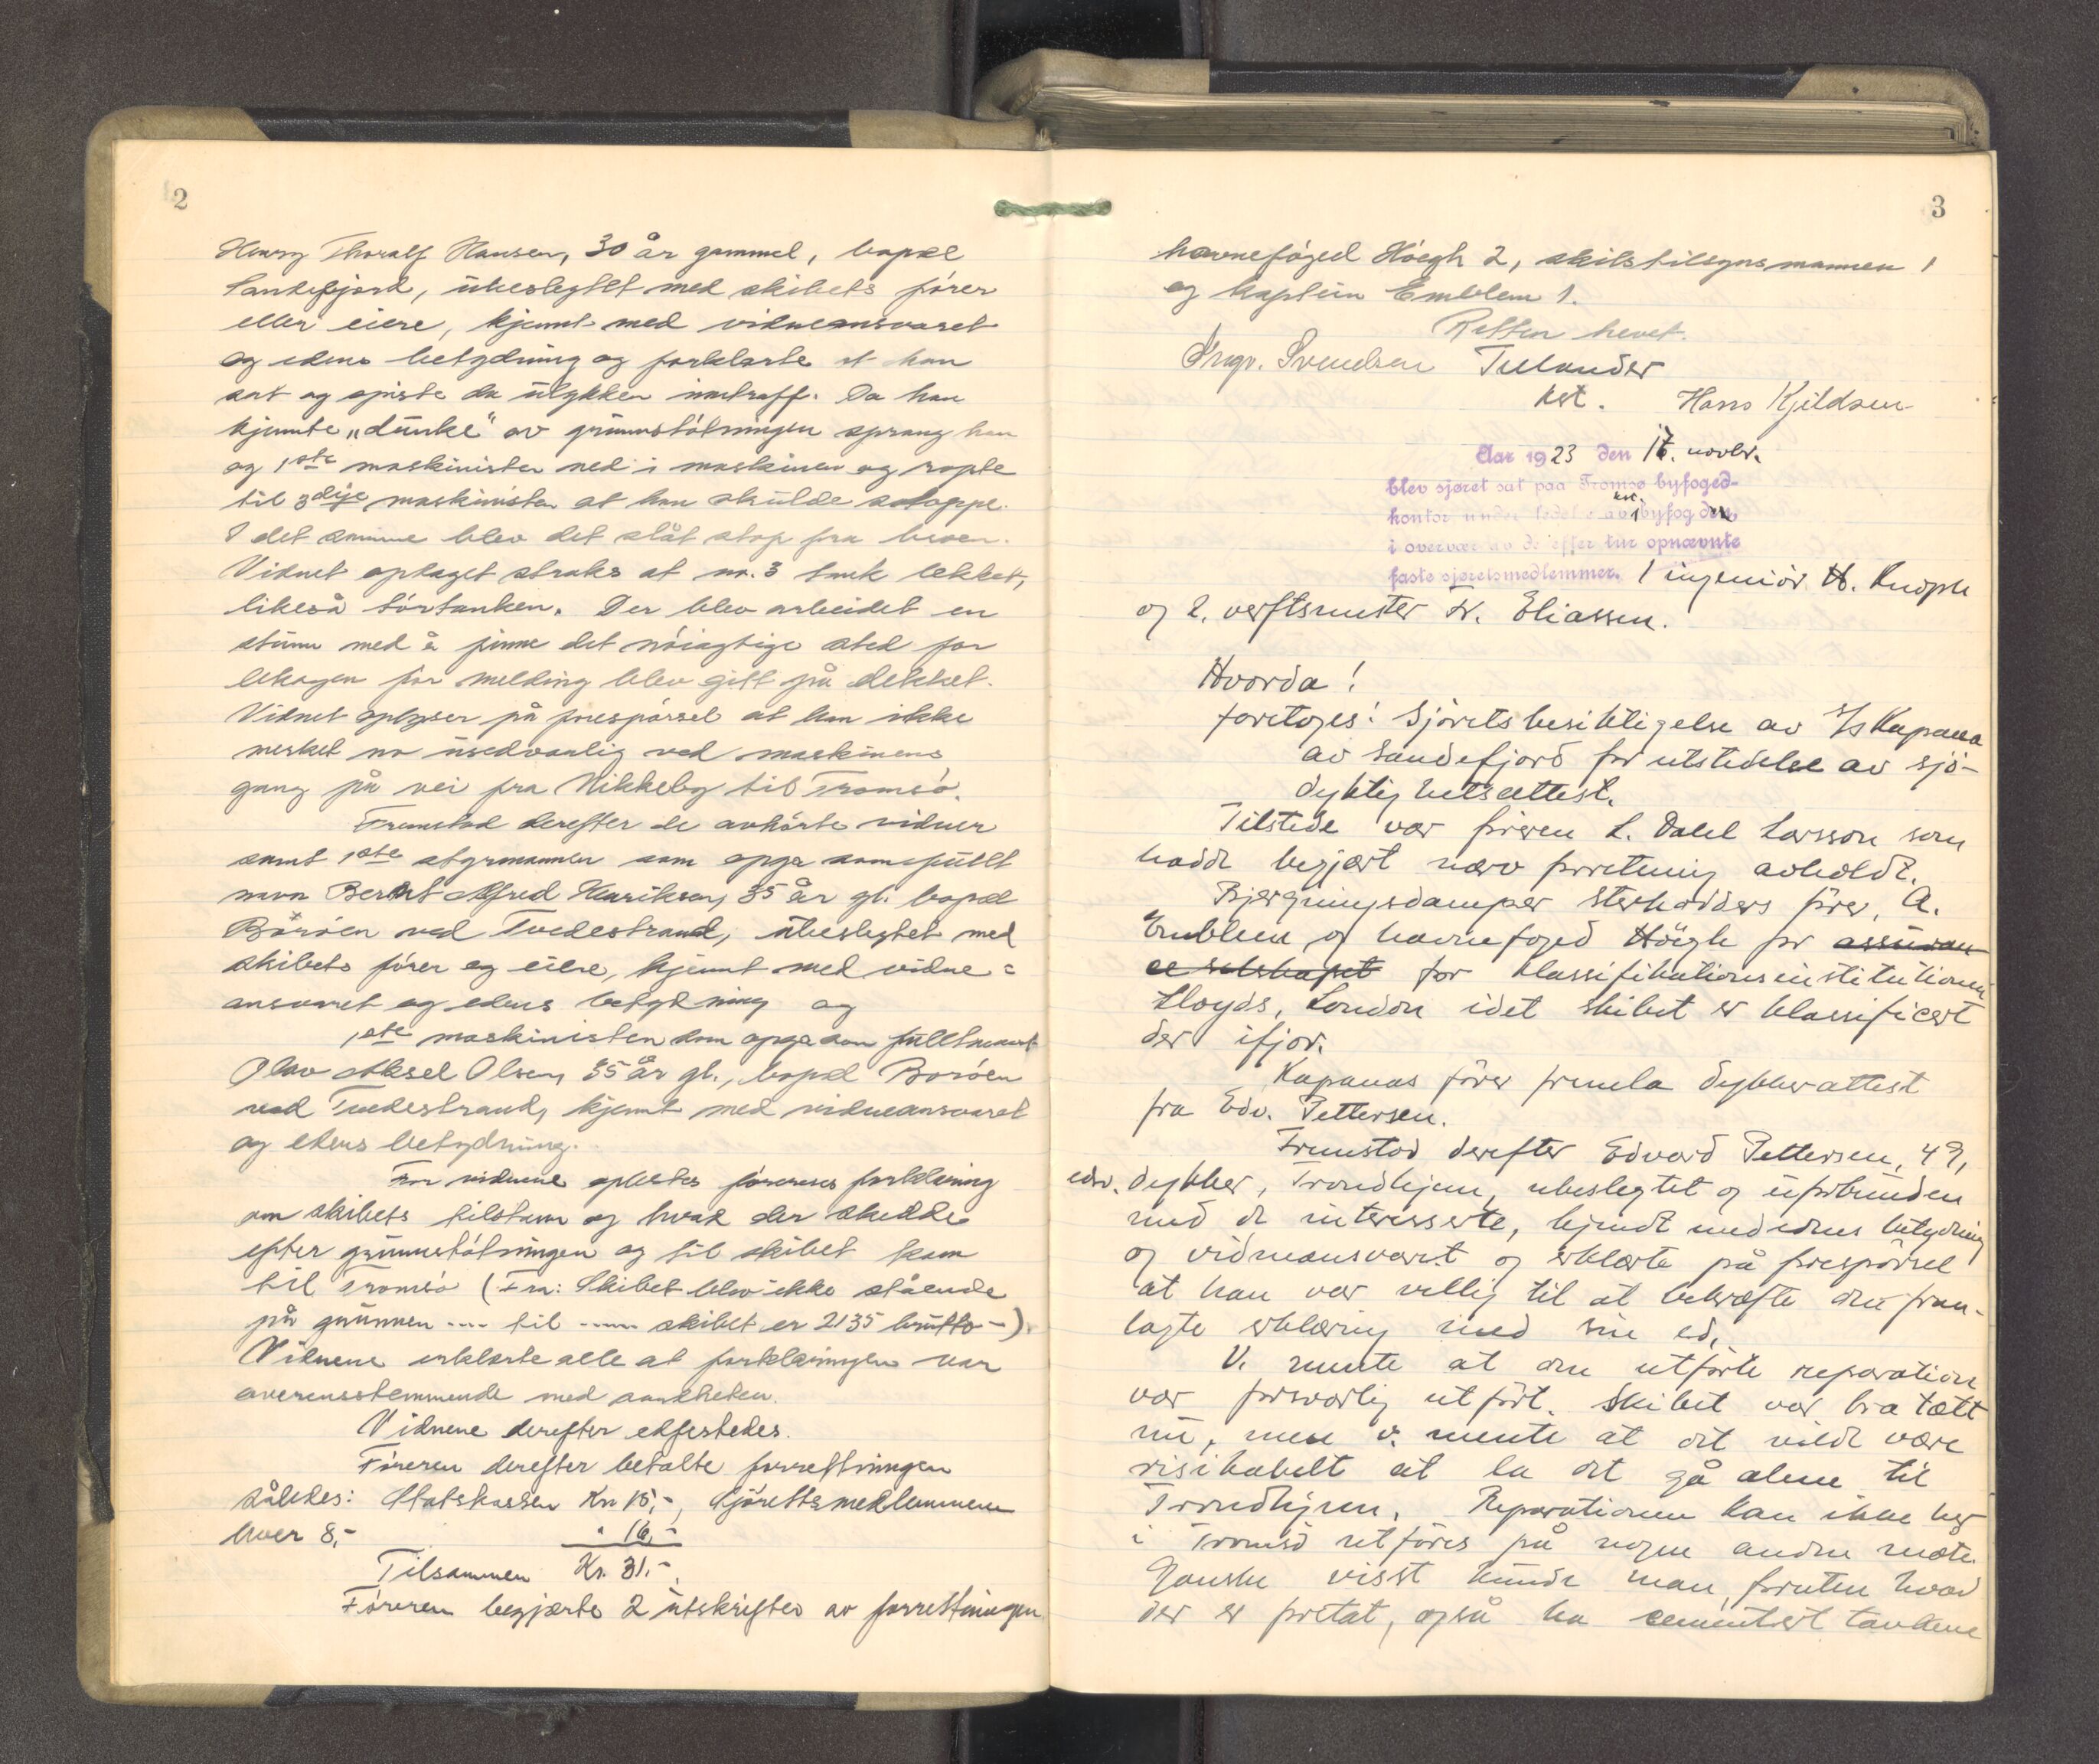 2
Henry Thoralf Hansen, 30 år gammel, bopæl
Sandefjord, ubeslegtet med skibets fører
eller eiere, kjennt med vidneansvaret
og edens betydning og forklarte at han
sat og spiste da ulykken inntraff. Da han
kjennte „dunke" av grunnstøtningen sprang han
og 1ste maskinisten ned i maskinen og ropte
til 3dje maskinisten at han skulde stoppe.
I det samme blev det slåt stop fra broen.
Vidnet opdaget straks at no. 3 tank lekket,
likeså tørtanken. Der blev arbeidet en
stunn med å finne det nøiagtige sted for
lekagen før melding blev gitt på dekket.
Vidnet oplyser på forespørsel at han ikke
merket no usedvanlig ved maskinens
gang på vei fra Nikkeby til Tromsø.
Fremstod derefter de avhørte vidner
samt 1ste styrmannen som opga som fullt
navn Bernt Alfred Henriksen, 35 år gl. bopæl
Borøen ved Tvedestrand, ubeslegtet med
skibets fører og eiere, kjennt med vidne=
ansvaret og edens betydning og
1ste maskinisten som opga som fullt navn
Olav Aksel Olsen, 35 år gl., bopæl Borøen
ved Tvedestrand, kjennt med vidneansvaret
og edens betydning.
For vidnene oplestes førerens forklaring
om skibets tilstann og hvad der skedde
efter grunnstøtningen og til skibet kom
til Tromsø (Fra: Skibet blev ikke stående
på grunnen .... til ..... skibet er 2135 brutto -).
Vidnene erklærte alle at forklaringen var
overensstemmende med sandheten.
Vidnene derefter edfestedes.
Føreren derefter betalte forretningen
således: Statskassen Kr. 15,-, Sjørettsmedlemmene
hver 8,- " 16,-
Tilsammen Kr. 31.-.
Føreren begjærte 2 utskrifter av forretningen
3
havnefoged Høegh 2, skibstilsynsmannen 1
og kaptein Emblem 1.
Retten hevet.
Ingv. Svendsen
kst. Hans Kjeldsen
Aar 1923 den 17. novbr.
blev sjøret sat paa Tromsø byfoged-
kontor under ledelse av kst. byfogden
i overvær av de efter tur opnævnte
faste sjøretsmedlemmer. 1 ingeniør H.
og 2. verftsmester Fr. Eliassen.
Hvorda!
foretoges: Sjøretsbesiktigelse av s/s Kapana
av Sandefjord for utstedelse av sjø-
dyktighetsattest.
Tilstede var føreren L. Dahl Larsson som
hadde begjært nærv. forretning avholdt.
Bjergningsdamper Sterkodders fører, A.
Emblem og havnefoged Høegh for assuran
ce selskapet for klassifikationsinstitutionen
Lloyds, London idet skibet er klassificert
der ifjor.
Kapanas fører fremla dykkerattest
fra Edv. Pettersen.
Fremstod derefter Edvard Pettersen, 49,
edv. dykker, Trondhjem, ubeslegtet og uforbunden
med de interesserte, kjendt med edens betydning
og vidneansvaret og erklærte på forespørsel
at han var villig til at bekræfte den frem-
lagte erklæring med sin ed.
V. mente at den utførte reparation
var forsvarlig utført. Skibet var bra tætt
nu, men v. mente at det vilde være
risikabelt at la det gå alene til
Trondhjem. Reparationen kan ikke her
i Tromsø utføres på nogen anden måte.
Ganske visst kunde man, foruten hvad
der er foretat, også ha cementert tankene